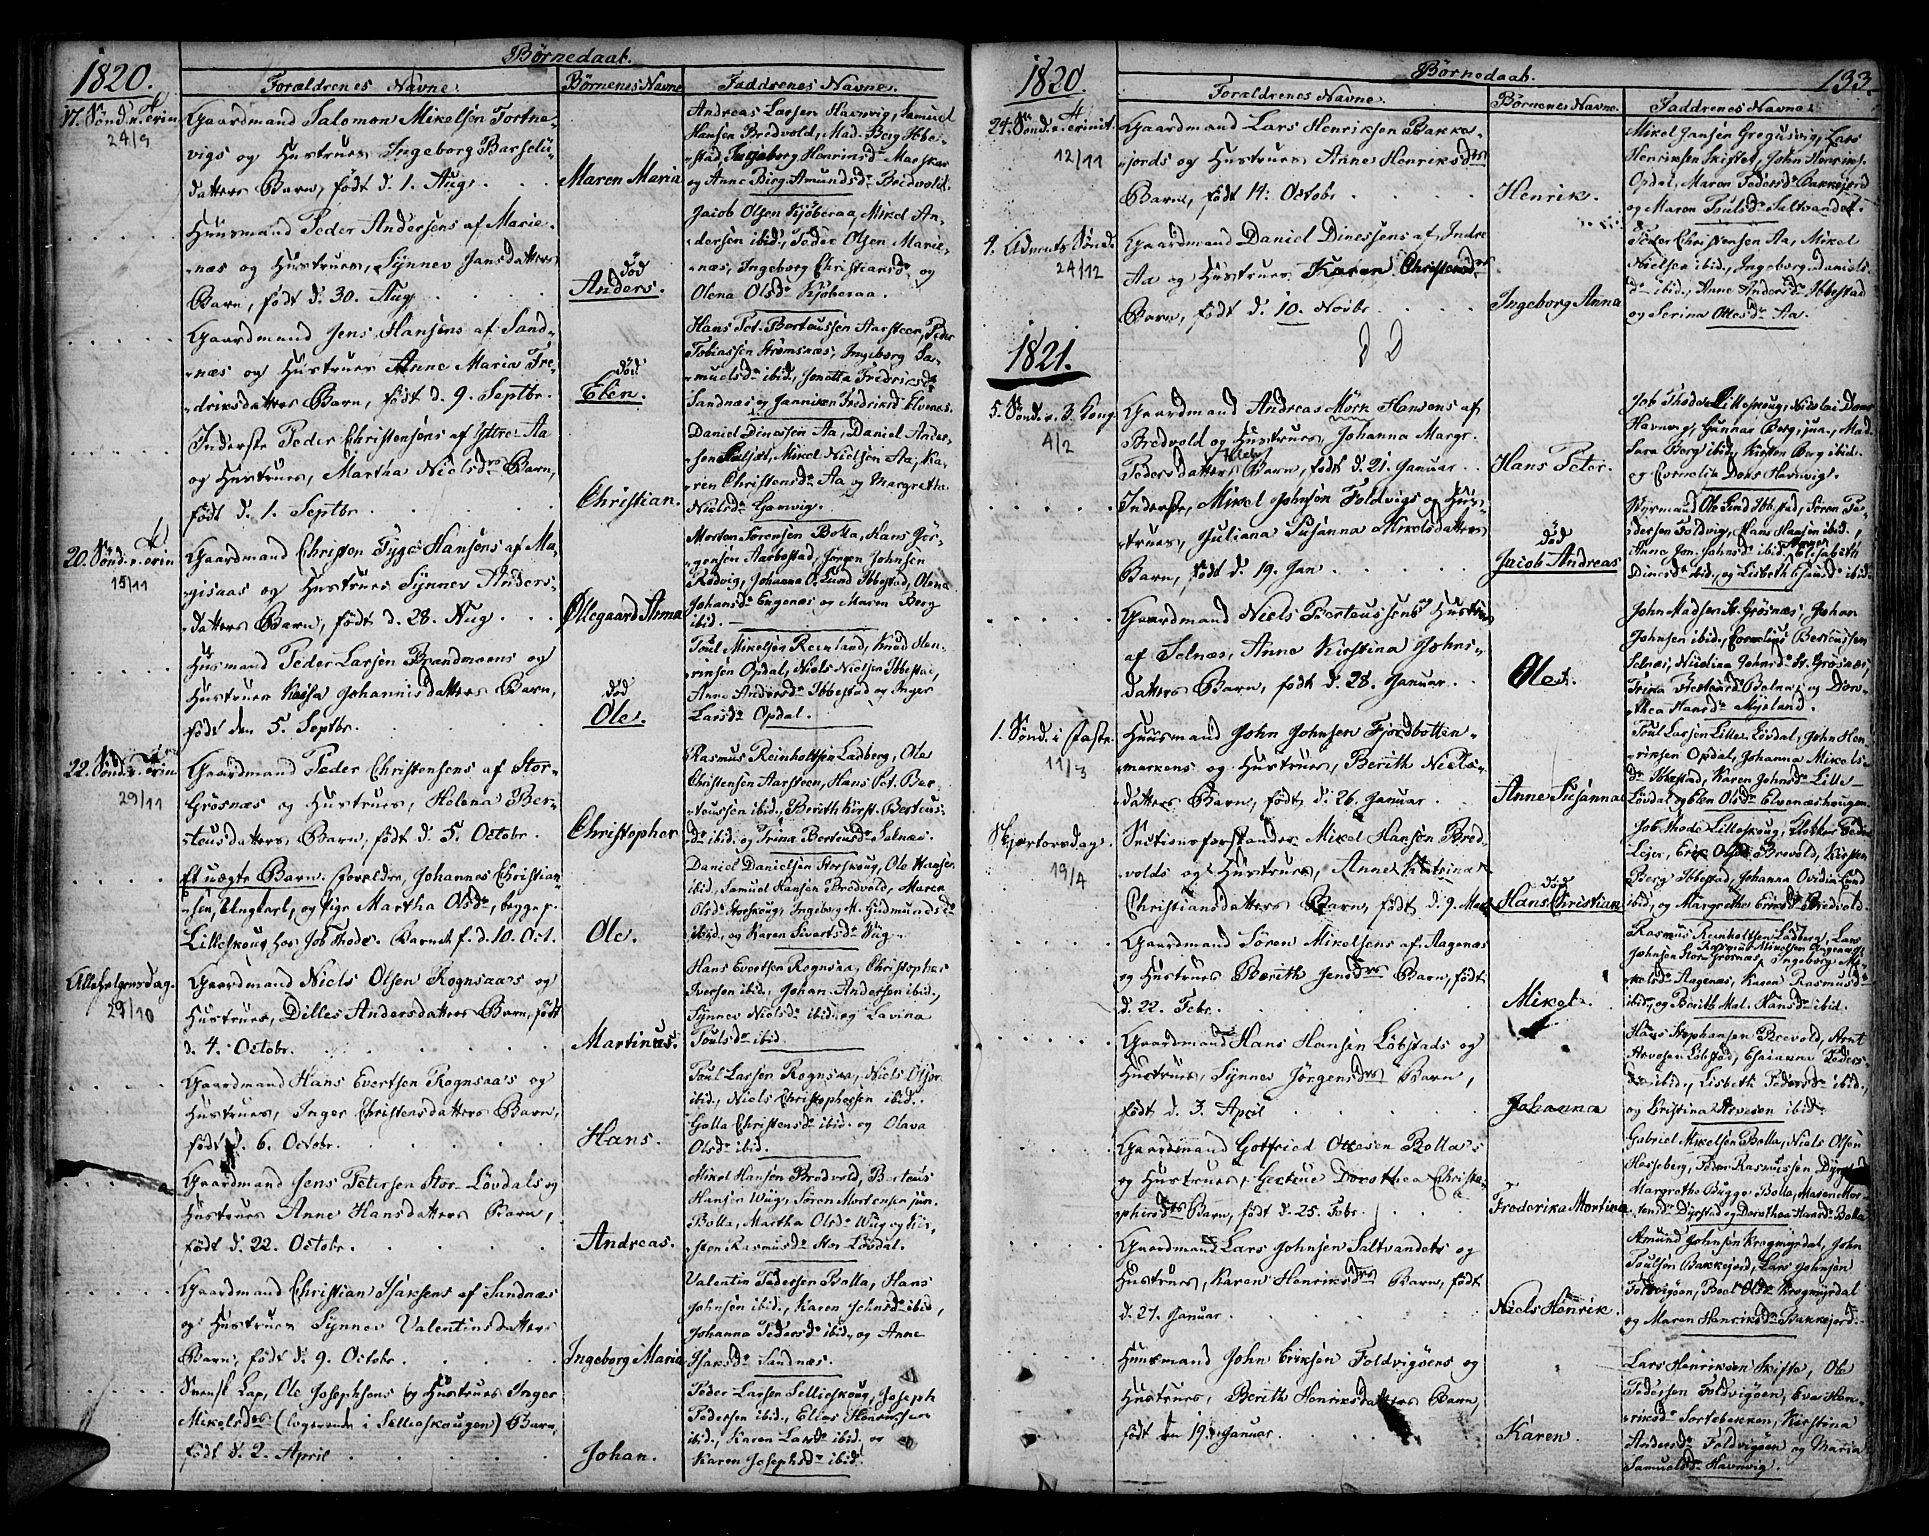 1820.
Børnedaab.
Forældrenes Navne.
Børnenes Navne
Faddrenes Navne.
17. Sønd. e. Trin
24/9
Gaardmand Salomon Mikelsen Fortne-
vigs og Hustrues Ingeborg Barseliü-
datters Barn, født d. 1. Aug.
Maren Maria
Andreas Larsen Havnvig, Samuel
Hansen Bredvold, Mad. Berg Ibbe-
stad, Ingeborg Henriksd.
og Anne Birg. Amundsd. Bredvold.
Huusmand Peder Andersens af Marie-
næs og Hustrues, Synnev Jansdatters
Barn, født d. 30. Aug.
død
Anders.
Jacob Olsen Kjøberaa, Mikel An-
dersen ibid, Peder Olsen Marie-
næs, Ingeborg Christiansd. og
Olena Olsd. Kjøberaa.
Gaardmand Jens Hansens af Sand-
næs og Hustrues Anne Maria Fre-
driksdatters Barn, født d. 9. Septbr.
død
Elen.
Hans Pet. Berteussen Aarsteen, Peder
Tobiassen Strømsnæs, Ingeborg Sa-
muelsd. ibid., Jonetta Fredriksd.
Sandnæs og Janniken Fredriksd. Elvenæs.
Inderste Peder Christensens af Ytre Aa
og Hustrues, Martha Nielsdrs Barn,
født d. 1. Septbr.
Christian.
Daniel Dinessen Aa, Daniel Ander-
sen Sultjæt, Mikel Nielsen Aa, Ka-
ren Christensd. Aa og Margrethe
Nielsd. Hamvig.
20. Sønd. e. Trin
15/11
Gaardmand Christen Tyge Hansens af Ma-
gisaas og Hustrues Synnev Anders-
datters Barn, født d. 28. Aug
Øllegaard Anna
Morten Sørensen Bolla, Hans Jør-
gensen Aarbostad, Jørgen Johnsen
Rødvig, Johanna O. Lund Ibbestad, Olena
Johansd. Engenæs og Maren Berg
ibid.
Husmand Peder Larsen Brandmoens og
Hustrues Kaisa Johannisdatters Barn,
født den 5. Septbr.
død
Ole.
Poul Mikelsen Reenland, Knud Hen-
riksen Opdal, Niels Nielsen Ibbestad,
Anne Andersd. Ibbestad og Inger
Larsd. Opdal.
22. Sønd. e. Trin
29/11
Gaardmand Peder Christensens af Stor-
Grøsnæs og Hustrues, Helena Ber-
teusdatters Barn, født d. 5. Octobr.
Christopher
Rasmus Reinholtsen Ladberg, Ole
Christensen Aarsteen, Hans Pet. Ber-
teussen ibid., Berith Kirst. Berteus-
d. ibid. og Trina Berteusd. Selnæs.
Et uægte Barn. Forældre, Johannes Christian-
sen, Ungkarl, og Pige Martha Olsd., begge p.
Lilleskoug hos Job Thode. Barnet f. d. 10. Oct.
Ole.
Daniel Danielsen Storskoug, Ole Hansen
ibid, Samuel Hansen Bredvold, Maren
Olsd. Storskoug, Ingeborg M. Gudmundsd.
ibid., og Karen Sivertsd. Wug.
Allehelgensdag.
29/10
Gaardmand Niels Olsen Rognsaas og
Hustrues, Dilles Andersdatters Barn, født
d. 4. Octobr.
Martinus.
Hans Evertsen Rognsaa, Christopher
Iversen ibid., Johan Andersen ibid.,
Synnev Nielsd. ibid. og Lavina
Poulsd. ibid.
Gaardmand Hans Evertsen Rognsaas og
Hustrues, Inger Christensdatters Barn,
født d. 6. Octobr.
Hans.
Poul Larsen Rognsaa, Niels Olsen
ibid., Niels Christophersen ibid.
Golla Christensd. ibid. og Olava
Olsd. ibid.
Gaardmand Jens Petersen Stor-Løvdals og
Hustrues Anne Hansdatters Barn,
født d. 22. Octobr.
Andreas.
Mikel Hansen Bredvold, Berteus
Hansen Wüg, Søren Mortensen jun.
Bolla, Martha Olsd. Wüg og Kir-
sten Rasmusd. Stor Løvdal.
Gaardmand Christian Isaksens af Sandnæs
og Hustrues Synnev Valentinsdatters
Barn, født d. 9. Octobr.
Ingeborg Maria
Valentin Pedersen Bolla, Hans
Johnsen ibid., Karen Johnsd. ibid.,
Johanna Pedersd. ibid., og Anne
Isaksd. Sandnæs.
Svensk Lap, Ole Josephsens og Hustrues Inger
Mikelsdrs (logerende i Sellieskougen) Barn,
født d. 2. April
Johan.
Peder Larsen Sellieskoug, Joseph
Pedersen ibid., Elias Henriksen
ibid., Karen Larsd. ibid. og
Karen Josephsd. ibid.
1820.
Børnedaab.
133.
Forældrenes Navne.
Børnenes Navne.
Faddrenes Navne.
24. Sønd. e. Trinit.
12/11
Gaardmand Lars Henriksen Bakke-
jords og Hustrues Anne Henriksdrs
Barn, født 14. Octobr.
Henrik.
Mikel Jansen Gregusvig, Lars
Henriksen Skiftet, John Henriks.
Opdal, Maren Pedersd. Bakkejord
og Maren Poulsd. Saltvandet.
4. Advents Sønd.
24/12
Gaardmand Daniel Dinessens af Indre
Aa og Hustrues Karen Christensdrs
Barn, født d. 10. Novbr.
Ingeborg Anna
Peder Christensen Aa, Mikel
Nielsen ibid., Ingeborg Daniels-
d. ibid., Anne Andersd. Ibbestad
og Serina Ottesd. Aa.
1821.
5. Sønd. e. H. 3 Kong.
4/2
Gaardmand Andreas Mörk Hansens af
Bredvold og Hustrues, Johanna Margr.
Pedersdatters Barn, født d. 21. Januar.
Hans Peter.
Job Thode Lilleskoug, Nicolai Dons
Havnvig, Gunnar Berg, jun., Mad.
Sara Berg ibid., Kirsten Berg ibid.
og Cornelia Dons Havnvig.
Inderste, Mikel Johnsen Foldvigs og Hus-
trues, Juliana Susanna Mikelsdatters
Barn, født d. 19. Jan
død
Jacob Andreas
Ole Lind Ibbestad, Søren Pe-
dersen Foldvig, Hans Hansen ibid.,
Anne Jon. Johnsd. ibid., Anne Elisabeth
Dinesd. ibid., og Lisbeth Esaiasd. ibid.
Gaardmand Niels Berteussens og Hustrues
af Selnæs, Anna Kirstina Johns-
datters Barn, født d. 28. Januar.
Ole.
John Madsen St. Grøsnæs, Johan
Johnsen ibid., Cornelius Berteussen
Selnæs, Nicolina Johnsd. St. Grøsnæs,
Trina Bolna, og Doro-
thea Hansd. Myeland.
1. Sønd. i Faste.
11/3
Huusmand John Johnsen Fjordbotten-
markens og Hustrues, Berith Niels-
datters Barn, født d. 26. Januar.
Anne Susanna
Poul Larsen Lille-Lövdal, John Hen-
riksen Opdal, Johanna Mikels-
d. Ibbestad, Karen Johnsd. Lille-
Lövdal og Elen Olsd. Elvenæshougen.
Skjærtorsdag.
19/4
Sections forstander Mikel Hansen Bred-
volds og Hustrues, Anne Katrina
Christiansdatters Barn, født d. 9. Mart
død
Hans Christian
Job Thode Lilleskoug, Klokker Peder
Lejer, Erik Olsen Brevold, Kirsten
Berg Ibbestad, Johanna Ovidia Lund
ibid., og Margrethe Eriksd. Bredvold.
Gaardmand Søren Mikelsens af Aagenæs
og Hustrues Berith Jensdrs Barn, født
d. 22. Febr.
Mikel.
Rasmus Reinholtsen Lødberg, Lars
Johnsen Stor-Grøsnæs, Rasmus Mikelsen Aagenæs, Ingeborg Mi-
kelsd. Aagenæs, Karen Rasmusd.
ibid., og Berith Mal. Hansd. ibid.
Gaardmand Hans Hansen Löbstads og
Hustrues, Synnev Jörgensdrs Barn,
født d. 3. April
Johanna
Hans Stephansen Brevold, Arnt
Arvesen Löbstad, Esaianna Peders-
d. ibid., Lisbeth Pedersd. ibid.,
og Kristina Arvesen ibid.
Gaardmand Gotfried Ottesen Bolla's
og Hustrues, Gertrue Dorothea Christo-
phersdrs Barn, født d. 25. Febr.
Frederika Martina
Gabriel Mikelsen Bolla, Niels Olsen
Hesseberg, Peder Rasmussen Dyrstad,
Margrethe Bugge Bolla, Maren Mor-
tensd. Dyrstad og Dorothea Hansd. Bolla
Gaardmand Lars Johnsen Saltvandets og
Hustrues, Karen Henriksdrs Barn, født
d. 27. Januar.
Niels Henrik.
Amund Johnsen Krogmyrdal, John
Poulsen Bakkejord, Lars Johnsen
Foldvigöen, Boel Olsd. Krogmyrdal
og Maren Henriksd. Bakkejord.
Huusmand John Eriksen Foldvigöens og
Hustrues, Berith Henriksdatters Barn,
født den 19. Januar.
Karen.
Lars Henriksen Skifte, Ole
Pedersen Foldvigöen, Ever Hen-
riksd. Sortebekken, Kirstina
Andersd. Foldvigöen og Maria
Samuelsd. Havnvig.